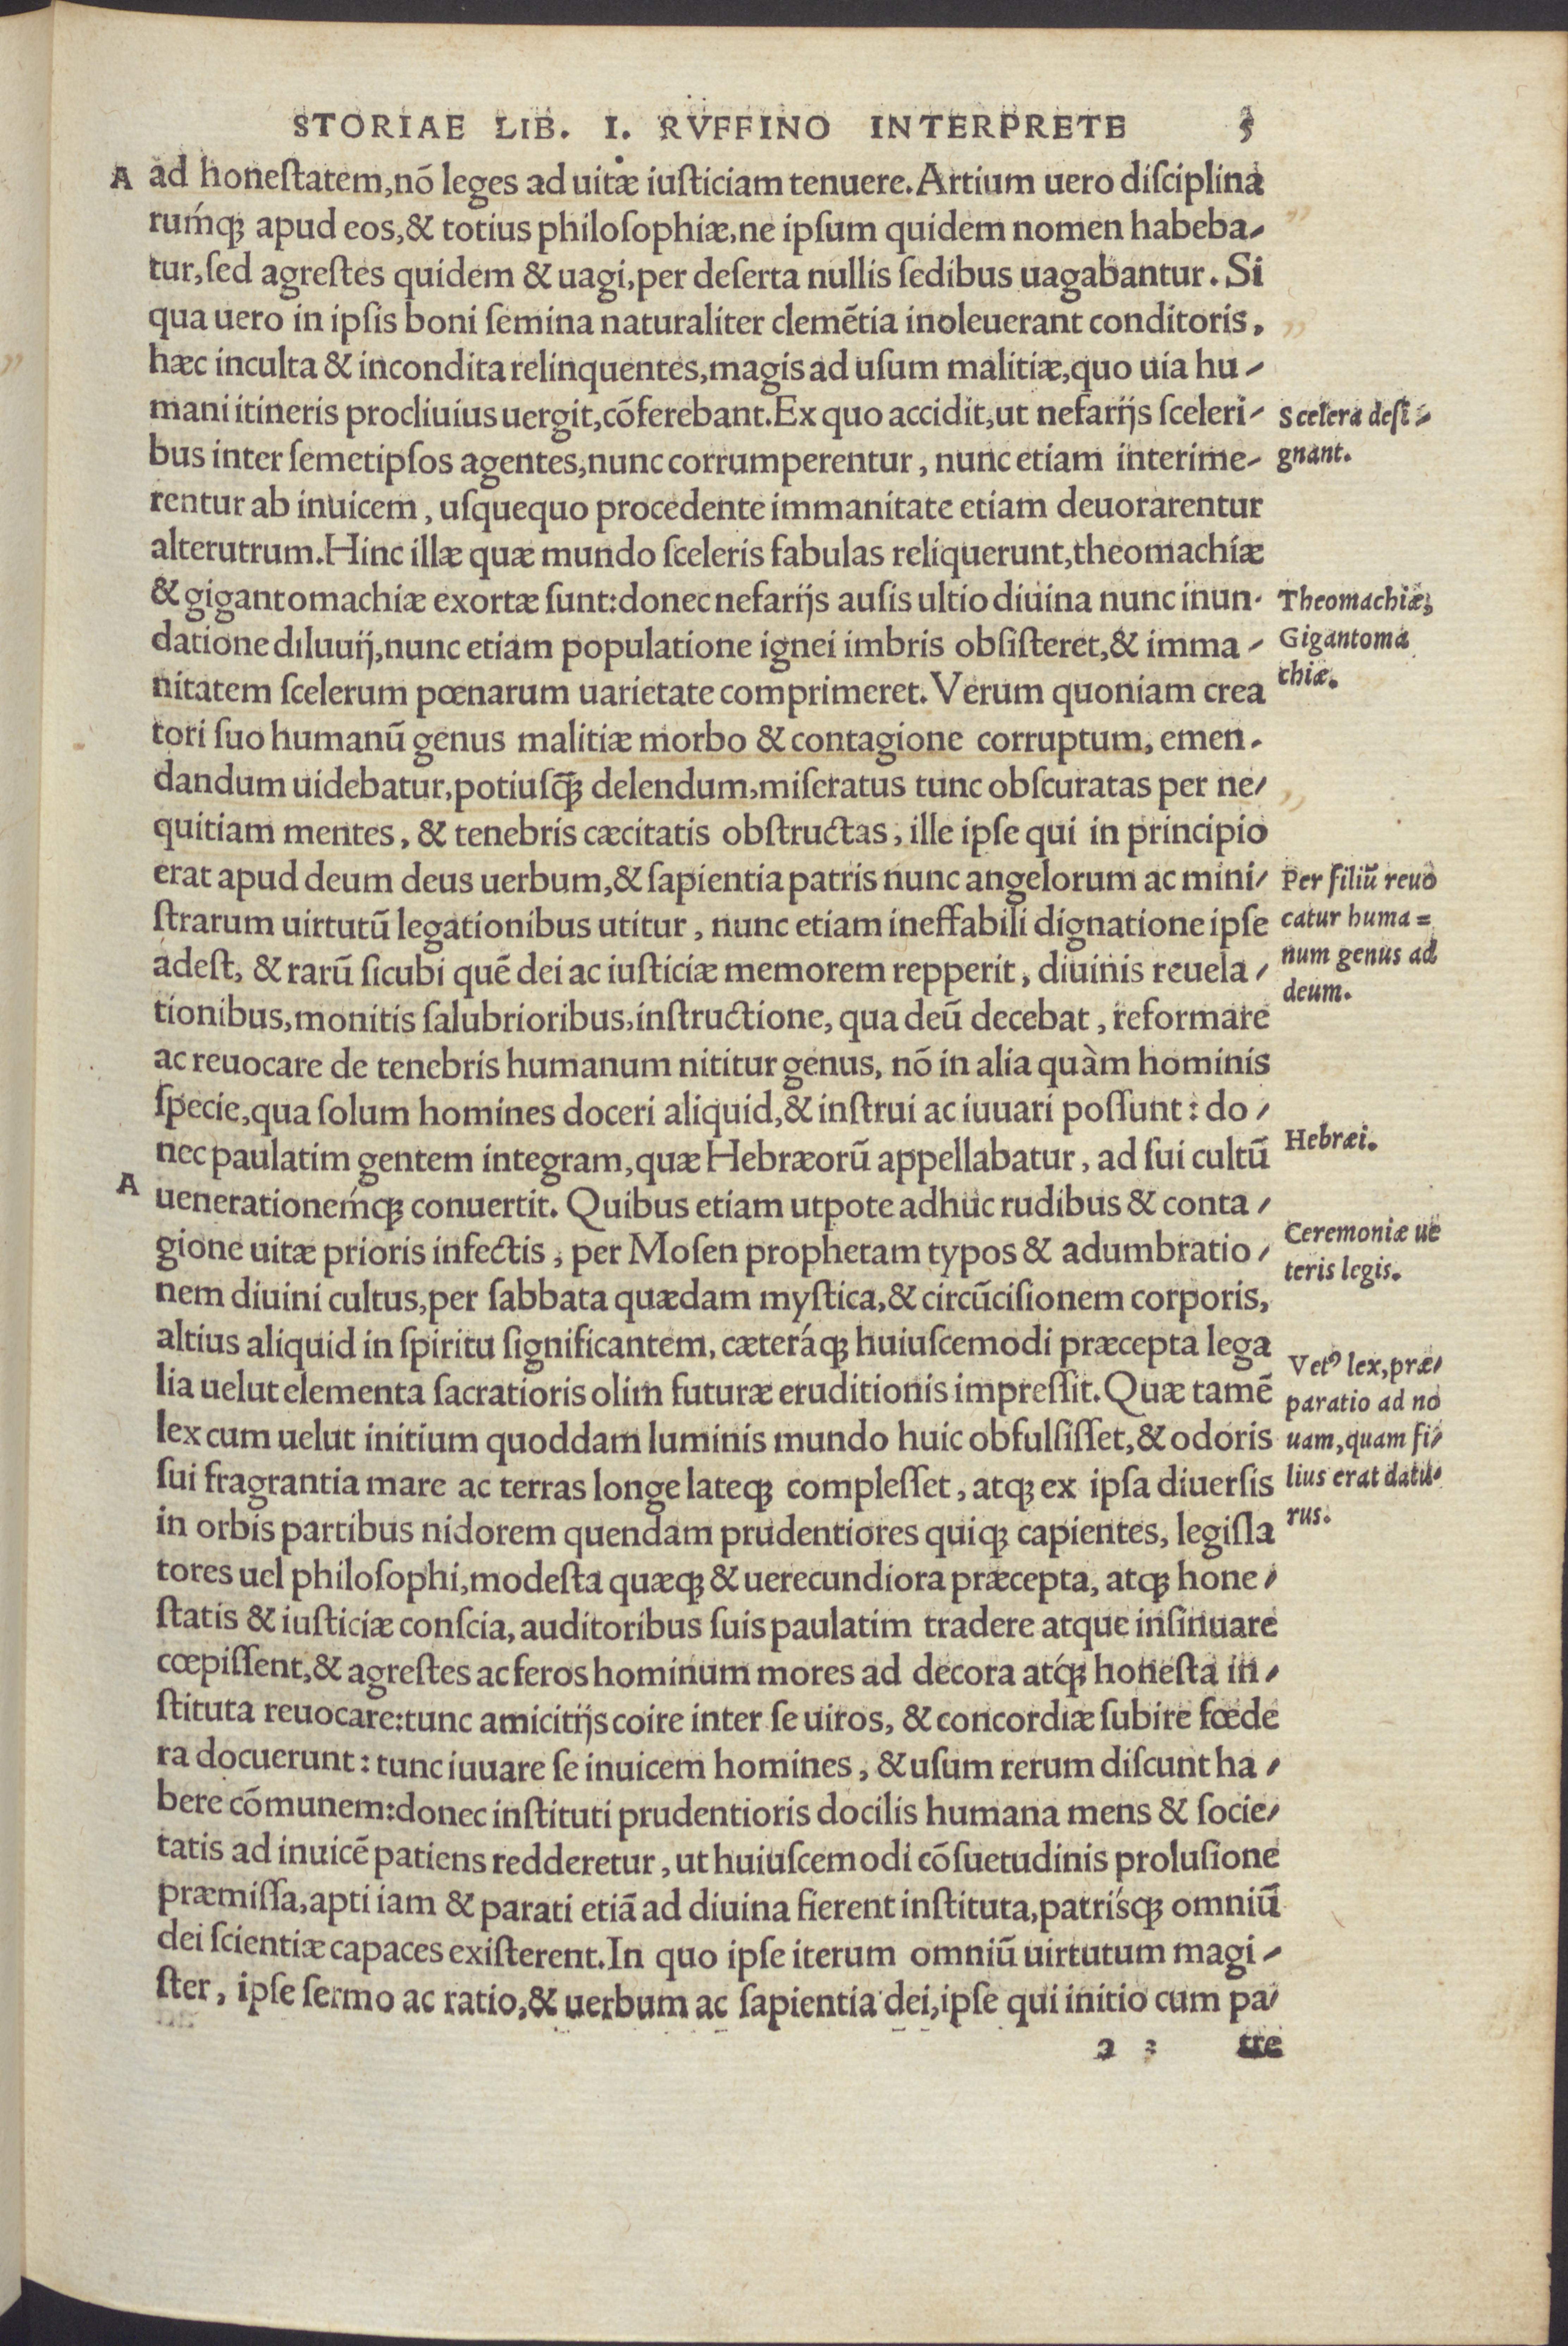 STORIAE LIB. I. RVFFINO INTERPRETE 5
A ad honeſtatem,nō leges ad uitæ iuſticiam tenuere.Artium uero diſciplina
rumq́ꝫ apud eos,& totius philoſophiæ,ne ipſum quidem nomen habeba-
tur,ſed agreſtes quidem & uagi,per deſerta nullis ſedibus uagabantur. Si
qua uero in ipſis boni ſemina naturaliter clemētia inoleuerant conditoris,
hæc inculta & incondita relinquentes,magis ad uſum malitiæ,quo uia hu-
mani itineris procliuius uergit,cōferebant.Ex quo accidit,ut nefarijs ſceleri-
bus inter ſemetipſos agentes,nunc corrumperentur, nunc etiam interime-
rentur ab inuicem, uſquequo procedente immanitate etiam deuorarentur
alterutrum.Hinc illæ quæ mundo ſceleris fabulas reliquerunt,theomachíæ
& gigantomachiæ exortæ ſunt:donec nefarijs auſis ultio diuina nunc inun-
datione diluuij,nunc etiam populatione ignei imbris obſiſteret,& imma-
nitatem ſcelerum pœnarum uarietate comprimeret. Verum quoniam crea
tori ſuo humanū genus malitiæ morbo & contagione corruptum, emen-
dandum uidebatur,potiuſq̄ꝫ delendum,miſeratus tunc obſcuratas per ne-
quitiam mentes, & tenebris cæcitatis obſtructas, ille ipſe qui in principio
erat apud deum deus uerbum,& ſapientia patris nunc angelorum ac mini-
ſtrarum uirtutū legationibus utitur, nunc etiam ineffabili dignatione ipſe
adeſt, & rarū ſicubi quē dei ac iuſticiæ memorem repperit, diuinis reuela-
tionibus,monitis ſalubrioribus,inſtructione, qua deū decebat, reformare
ac reuocare de tenebris humanum nititur genus, nō in alia quàm hominis
ſpecie,qua ſolum homines doceri aliquid,& inſtrui ac iuuari poſſunt: do-
nec paulatim gentem integram,quæ Hebræorū appellabatur, ad ſui cultū
A uenerationemq́ꝫ conuertit. Quibus etiam utpote adhuc rudibus & conta-
gione uitæ prioris infectis, per Moſen prophetam typos & adumbratio-
nem diuini cultus,per ſabbata quædam myſtica,& circūciſionem corporis,
altius aliquid in ſpiritu ſignificantem, cæteráqꝫ huiuſcemodi præcepta lega
lia uelut elementa ſacratioris olim futuræ eruditionis impreſſit. Quæ tamē
lex cum uelut initium quoddam luminis mundo huic obfulſiſſet,& odoris
ſui fragrantia mare ac terras longe lateqꝫ compleſſet, atqꝫ ex ipſa diuerſis
in orbis partibus nidorem quendam prudentiores quiqꝫ capientes, legiſla
tores uel philoſophi,modeſta quæqꝫ & uerecundiora præcepta, atqꝫ hone-
ſtatis & iuſticiæ conſcia, auditoribus ſuis paulatim tradere atque inſinuare
cœpiſſent,& agreſtes ac feros hominum mores ad decora atq́ꝫ honeſta in-
ſtituta reuocare:tunc amicitijs coire inter ſe uiros, & concordiæ ſubire fœde
ra docuerunt: tunc iuuare ſe inuicem homines, & uſum rerum diſcunt ha-
bere cōmunem:donec inſtituti prudentioris docilis humana mens & ſocie-
tatis ad inuicē patiens redderetur, ut huiuſcemodi cōſuetudinis proluſione
præmiſſa,apti iam & parati etiā ad diuina fierent inſtituta,patriśqꝫ omniū
dei ſcientiæ capaces exiſterent.In quo ipſe iterum omniū uirtutum magi-
ſter, ipſe ſermo ac ratio,& uerbum ac ſapientia dei,ipſe qui initio cum pa-
a 3 tre
Scelera deſi-
gnant.
Theomachiæ,
Gigantoma
chiæ.
Per filiū reuo
catur huma=
num genus ad
deum.
Hebræi.
Ceremoniæ ue
teris legis.
Vetꝰ lex,præ-
paratio ad no
uam,quam fi-
lius erat datu-
rus.